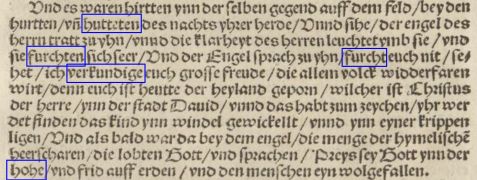 Und es waren hirtten ynn der selben gegend auff dem feld/bey den
hurtten/vñ hutteten des nachts yhrer herde/Vnnd sihe/der engel des
herrn tratt zu yhn/vnnd die klarheyt des herren leuchtet vmb sie/vnd
sie furchten sich seer/Vnd der Engel sprach zu yhn/furcht euch nit/se-
het/ich verkundige euch grosse freude/die allem volck widderfaren
wirt/denn euch ist heutte der heyland geporn/wilcher ist Christus
der herre/ynn der stadt Dauid/vnnd das habt zum zeychen/yhr wer
det finden das kind ynn windel gewickellt/vnnd ynn eyner krippen
ligen/Vnd als bald war da bey dem engel/die menge der hymelischẽ
heerscharen/die lobten Gott/vnd sprachen/Preys sey Gott ynn der
hohe/vnd frid auff erden/vnd den menschen eyn wolgefallen.